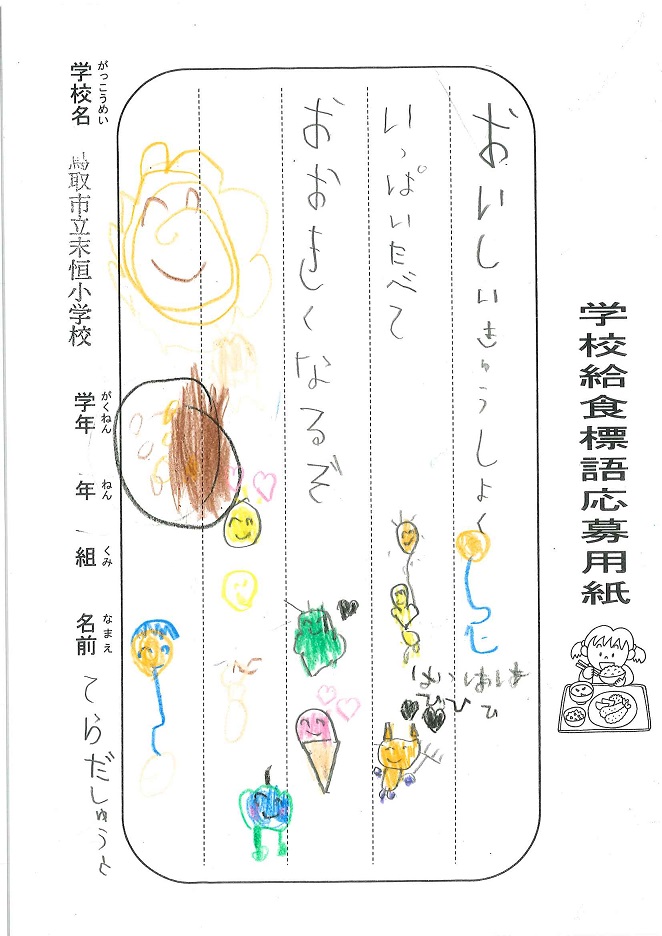 学校給食標語応募用紙
おいしいきゅうしょく
いっぱいたべて
おおきくなるぞ
がっこうめい
学校名 鳥取市立末恒小学校
がくねん
学年
ねん
年
くみ
組
なまえ
名前 てらだしゅうと